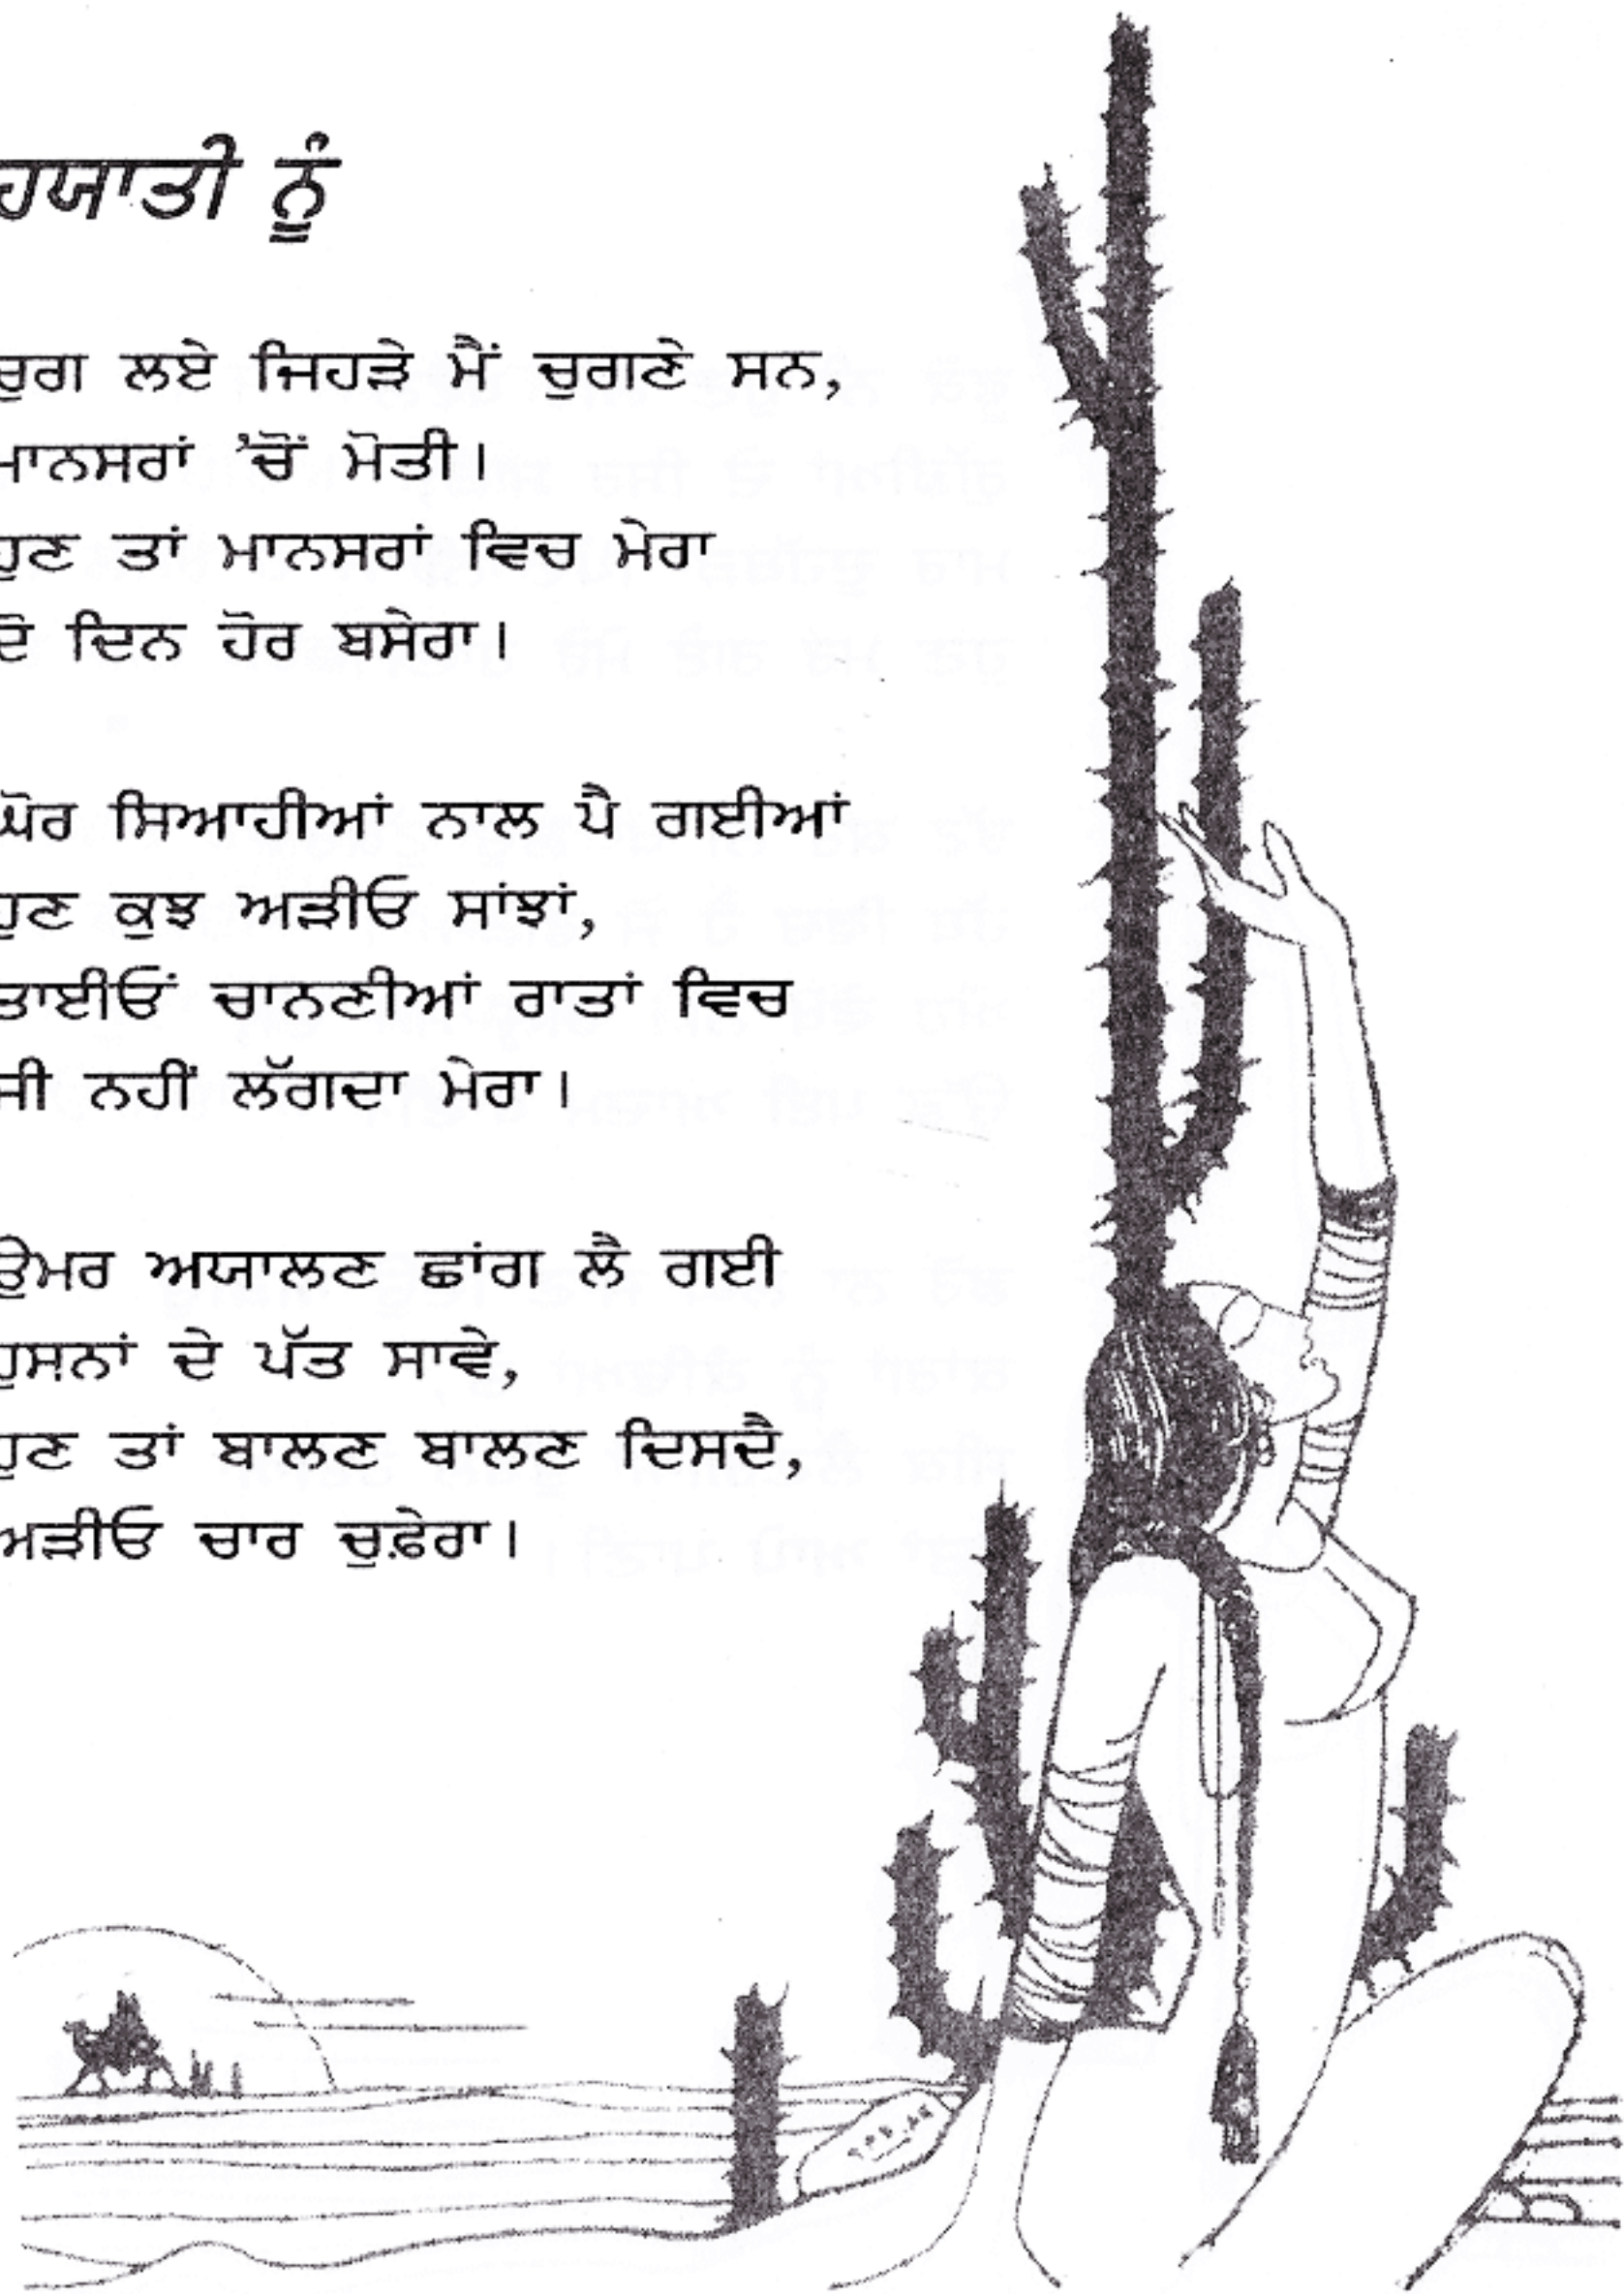 ਹਯਾਤੀ ਨੂੰ
ਚੁਗ ਲਏ ਜਿਹੜੇ ਮੈਂ ਚੁਗਣੇ ਸਨ,
ਮਾਨਸਰਾਂ 'ਚੋਂ ਮੋਤੀ।
ਹੁਣ ਤਾਂ ਮਾਨਸਰਾਂ ਵਿਚ ਮੇਰਾ
ਦੋ ਦਿਨ ਹੋਰ ਬਸੇਰਾ।
ਘੋਰ ਸਿਆਹੀਆਂ ਨਾਲ ਪੈ ਗਈਆਂ
ਹੁਣ ਕੁਝ ਅੜੀਓ ਸਾਂਝਾਂ,
ਤਾਈਓਂ ਚਾਨਣੀਆਂ ਰਾਤਾਂ ਵਿਚ
ਜੀ ਨਹੀਂ ਲੱਗਦਾ ਮੇਰਾ।
ਉਮਰ ਅਯਾਲਣ ਛਾਂਗ ਲੈ ਗਈ
ਹੁਸਨਾਂ ਦੇ ਪੱਤ ਸਾਵੇ,
ਹੁਣ ਤਾਂ ਬਾਲਣ ਬਾਲਣ ਦਿਸਦੈ,
ਅੜੀਓ ਚਾਰ ਚੁਫ਼ੇਰਾ।